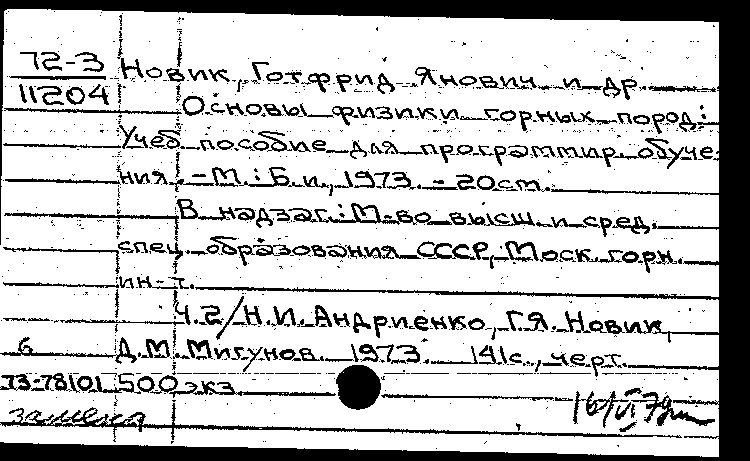 72-3 Новик, Готфрид Янович и др.
11204 Основы физики горных пород:
Учеб. пособие для программир. обуче
ния. - М.: Б. и., 1973. - 20см.
В надзаг.: М-во высш. и сред.
спец. образования СССР, Моск. горн.
ин-т.
Ч.2/Н.И.Андриенко, Г.Я.Новик,
6 Д.М.Мигунов. 1973. 141с., черт.
73-78101 500 экз.
замена